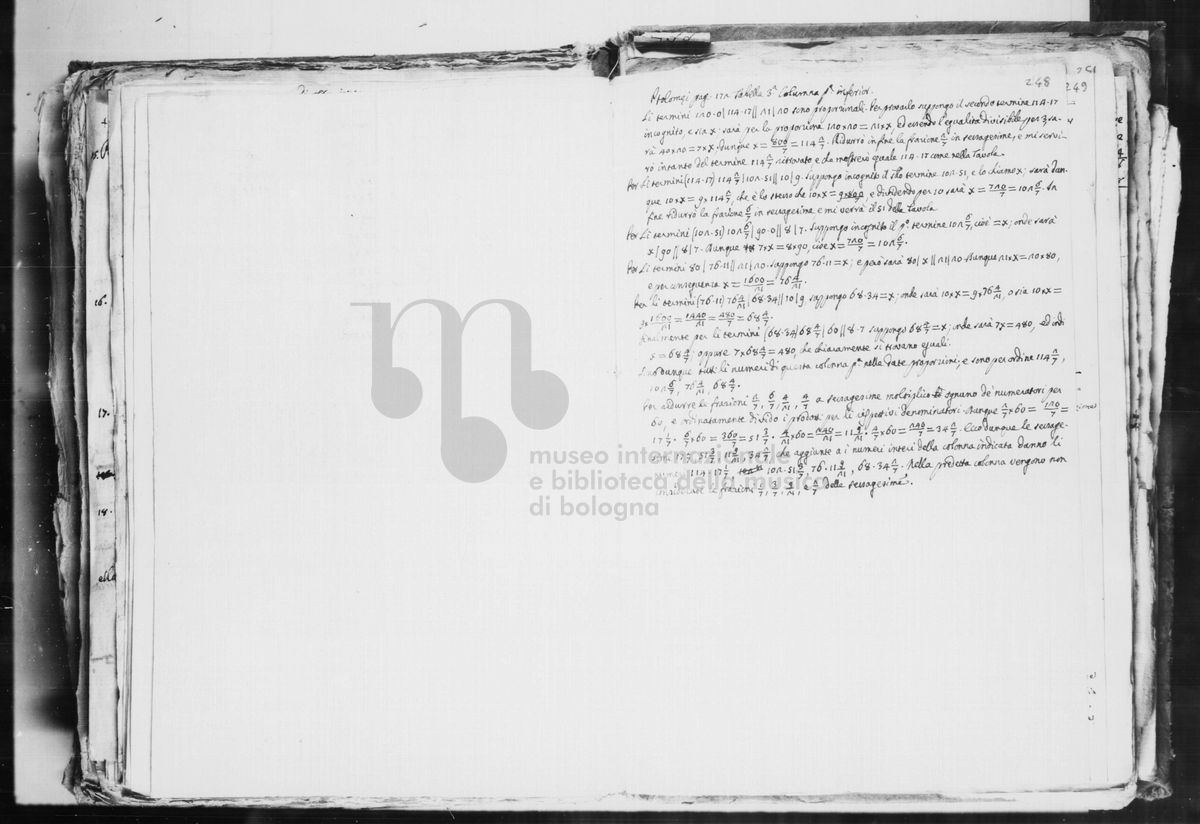 248
251
249
Ptolomei pag. 172 Tabella 3ª Columna pª inferior.
Li termini 120·0 | 114·17 || 21 | 20 sono proporzionali. Per provarlo suppongo il secondo termine 114·17
incognito, e sia x. sarà per la proporzione 120x20 = 21xx, ed essendo l'egualità divisibile per 3 sa-
rà 40x20 = 7xx. dunque x = 800/7 = 114 2/7. Ridurrò in fine la frazione 2/7 in sessagesime, e mi servi-
rò intanto del termine 114 2/7 ritrovato e da mostrarsi eguale 114·17 come nella Tavola.
Per Li termini (114·17) 114 2/7 | 102·51 || 10 | 9. suppongo incognito il 2do termine 102·51, e lo chiamo x; sarà dun-
que 10xx = 9x114 2/7, che è lo stesso che 10xx = 9x800/7, e dividendo per 10 sarà x = 720/7 = 102 6/7. In
fine ridurrò la frazione 6/7 in sessagesime e mi verrà il 51 della Tavola
Per Li termini (102·51) 102 6/7 | 90·0 || 8 | 7. suppongo incognito il pº termine 102 6/7, cioè = x; onde sarà
x | 90 || 8 | 7. dunque 7xx = 8x90, cioè x = 720/7 = 102 6/7.
Per Li termini 80 | 76·11 || 21 | 20. suppongo 76·11 = x; e però sarà 80 | x || 21 | 20. dunque 21xx = 20x80,
e per conseguenza x = 1600/21 = 76 4/21.
Per li termini (76·11) 76 4/21 | 68·34 || 10 | 9. suppongo 68·34 = x; onde sarà 10xx = 9x76 4/21, o sia 10xx =
9x1600/21 = 1440/21 = 480/7 = 68 4/7.
finalmente per li termini (68·34) 68 4/7 | 60 || 8·7 suppongo 68 4/7 = x; onde sarà 7x = 480, ed indi
x = 68 4/7; oppure 7x68 4/7 = 480, che chiaramente si trovano eguali.
dunque tutti li numeri di questa colonna pª nelle date proporzioni; e sono per ordine 114 2/7,
102 6/7, 76 4/21, 68 4/7.
Per ridurre le frazioni 2/7, 6/7, 4/21, 4/7 a sessagesime moltiplico ognuno de' numeratori per
60, e ordinatamente divido i prodotti per li rispettivi denominatori. dunque 2/7x60 = 120/7 =
17 1/7. 6/7x60 = 360/7 = 51 3/7. 4/21x60 = 240/21 = 11 9/21. 4/7x60 = 240/7 = 34 2/7. Ecco dunque le sessage-
sime 17 1/7, 51 3/7, 11 9/21, 34 2/7, che aggiunte a i numeri interi della colonna indicata danno li
numeri 114·17 1/7, 102·51 3/7, 76·11 9/21, 68·34 2/7. Nella predetta colonna vengono non
le frazioni 1/7, 3/7, 9/21, e 2/7 delle sessagesime.
16.
17.
18.
ella
museo internazionale
e biblioteca della musica
di bologna